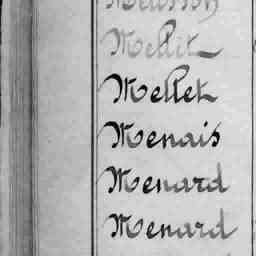 Mellit
Mellet
Menais
Menard
Menard